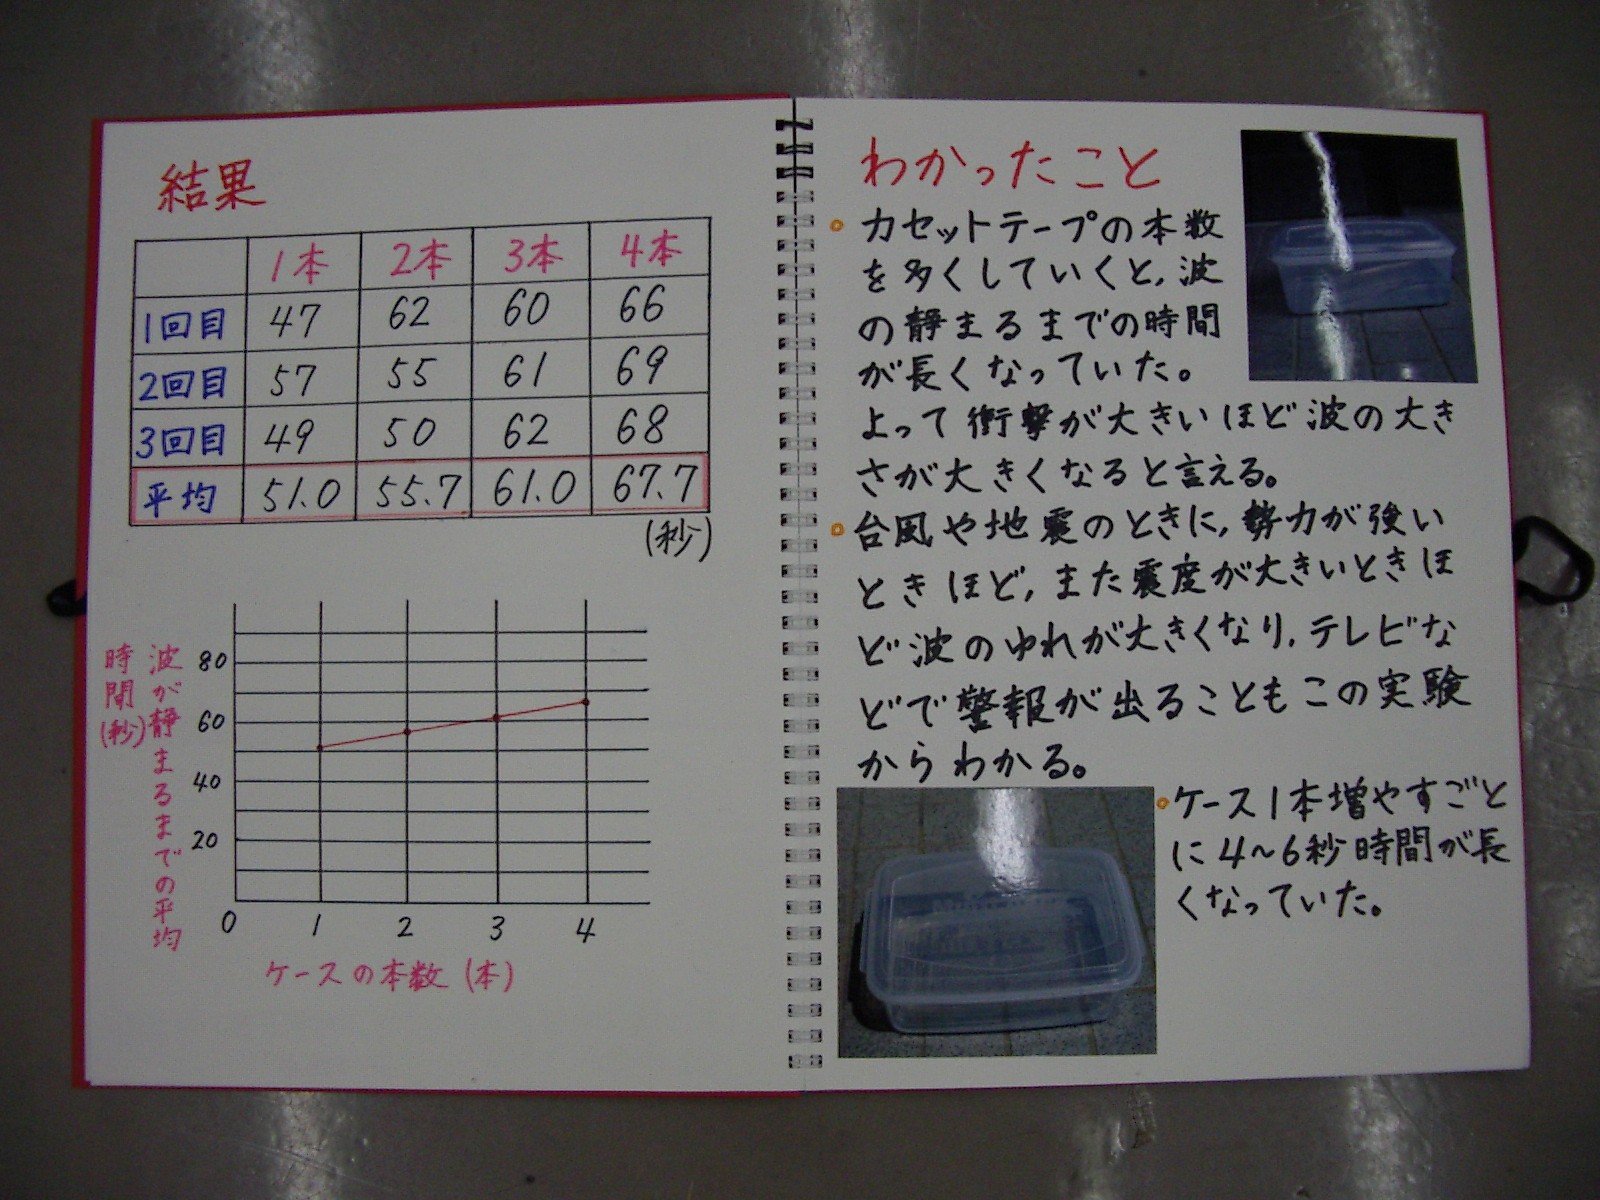 結果
1本 2本 3本 4本
1回目 47 62 60 66
2回目 57 55 61 69
3回目 49 50 62 68
平均 51.0 55.7 61.0 67.7
(秒)
波が静まるまでの平均
時間(秒)
80
60
40
20
0 1 2 3 4
ケースの本数(本)
わかったこと
カセットテープの本数
を多くしていくと,波
の静まるまでの時間
が長くなっていた。
よって衝撃が大きいほど波の大き
さが大きくなると言える。
台風や地震のときに,勢力が強い
ときほど,また震度が大きいときほ
ど波のゆれが大きくなり,テレビな
どで警報が出ることもこの実験
からわかる。
ケース1本増やすごと
に4~6秒時間が長
くなっていた。